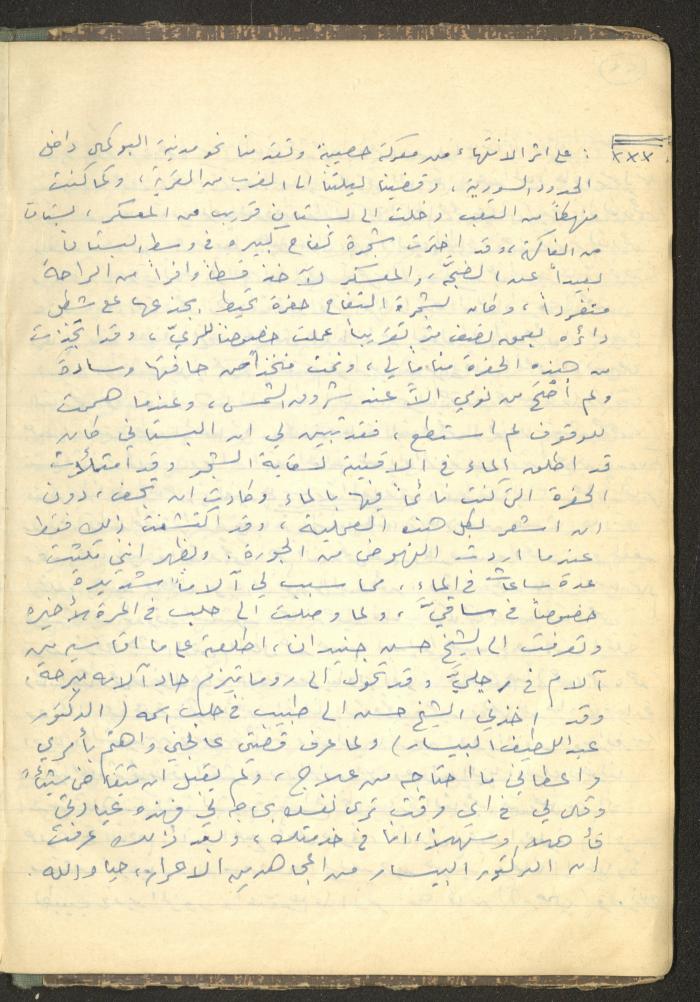 ××× : على اثر الانتهاء من معركة حصيبة وتقدمنا نحو مدينة البوكمال داخل
الحدود السورية، وقضينا ليلتنا الى القرب من القرية، وكما كنت
منهكاً من التعب دخلت الى بستان قريب من المعسكر، بستان
من الفاكهة، وقد اخترت شجرة تفاح كبيره في وسط البستان
بعيداً عن الضجة، والمعسكر لآخذ قسطاً وافراً من الراحة
منفرداً، وكان لشجرة التفاح حفرة تحيط بجذعها على شكل
دائره بعمق نصف متر تقريباً عملت خصوصاً للريّ، وقد اتخذت
من هذه الحفرة مناماً لي، ونمت متخذاً من حافتها وسادة
ولم أصْحَ من نومي الاّ عند شروق الشمس، وعندما هممت
للوقوف لم استطع، فقد تبين لي ان البستاني كان
قد اطلق الماء في الاقنية لسقاية الشجر وقد امتلأت
الحفرة التي كنت نائماً فيها بالماء وكادت ان تجف، دون
ان اشعر بكل هذه العملية، وقد اكتشفت ذلك فقط
عندما اردت النهوض من الجورة. ويظهر انني مكثت
عدة ساعات في الماء، مما سبب لي آلاماً شديدة
خصوصاً في ساقيَّ، ولما وصلت الى حلب في المرة الأخيره
وتعرفت الى الشيخ حسن، اطلعته على ما اقاسيه من
آلام في رجليَّ وقد تحول الى روماتيزم حاد آلامه مبرحة،
وقد اخذني الشيخ حسن الى طبيب في حلب اسمه (الدكتور
عبد اللطيف البيسار) ولما عرف قضيتي عالجني واهتم بأمري
واعطاني ما احتاجه من علاج، ولم يقبل ان يتقاضى شيئاً
وقال لي في اي وقت ترى نفسك بحاجة لي فهذه عيادتي
فأهلا وسهلا، انا في خدمتك، وبعد ذلك عرفت
ان الدكتور البيسار من المجاهدين الاحرار، حياه الله.